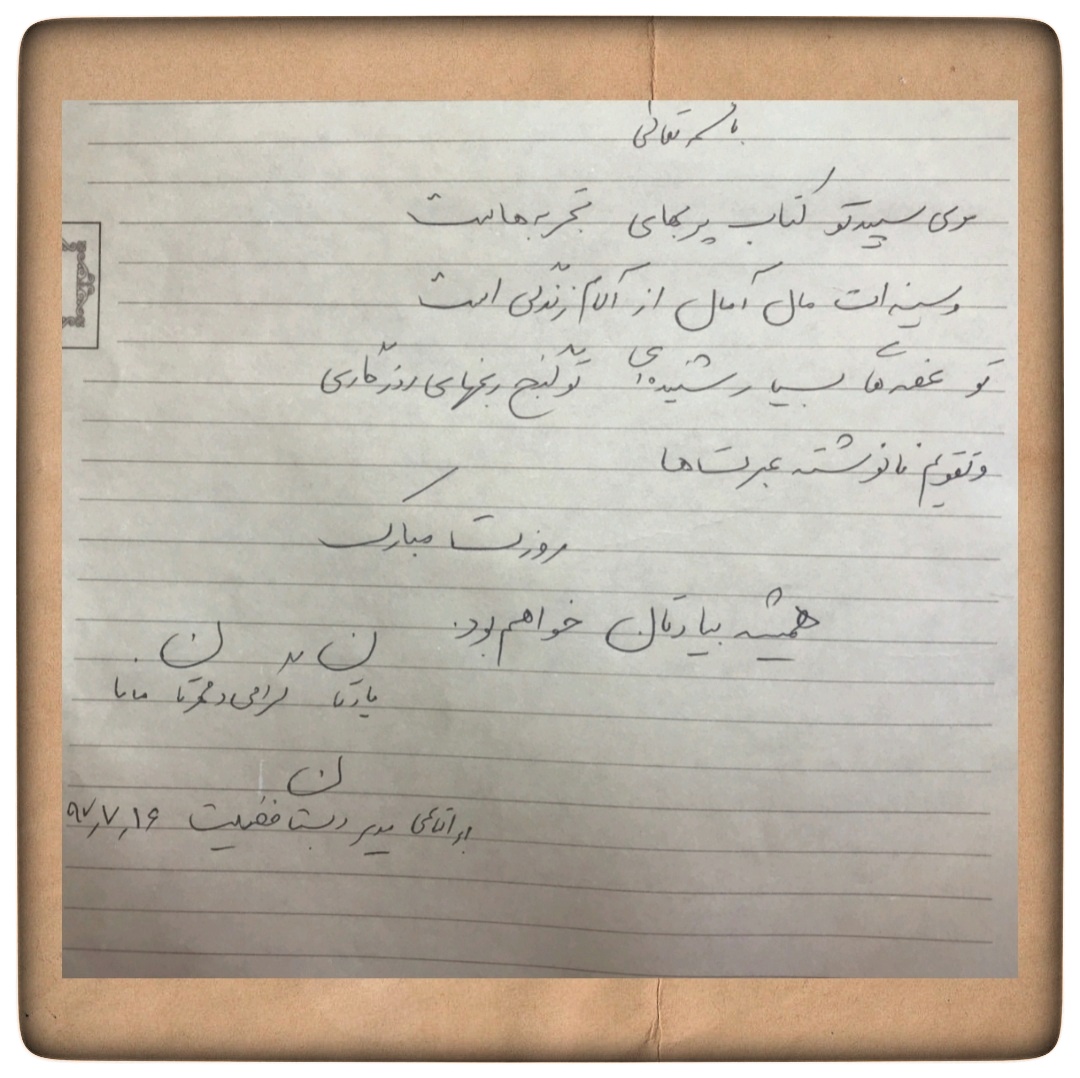 باسمه تعالی
موی سپید تو کتاب پربهای تجربه هاست
وسینه ات مال آمال از آلام زندگی است
تو غصه های بسیار شنیده ای تو گنج رنجهای روزگاری
وتقویم نانوشته عبرتها
روزت مبارک
همیشه بیادتان خواهم بود.
گرامی
مدیر دبستان فضیلت ۹۷٫۷٫۱۶